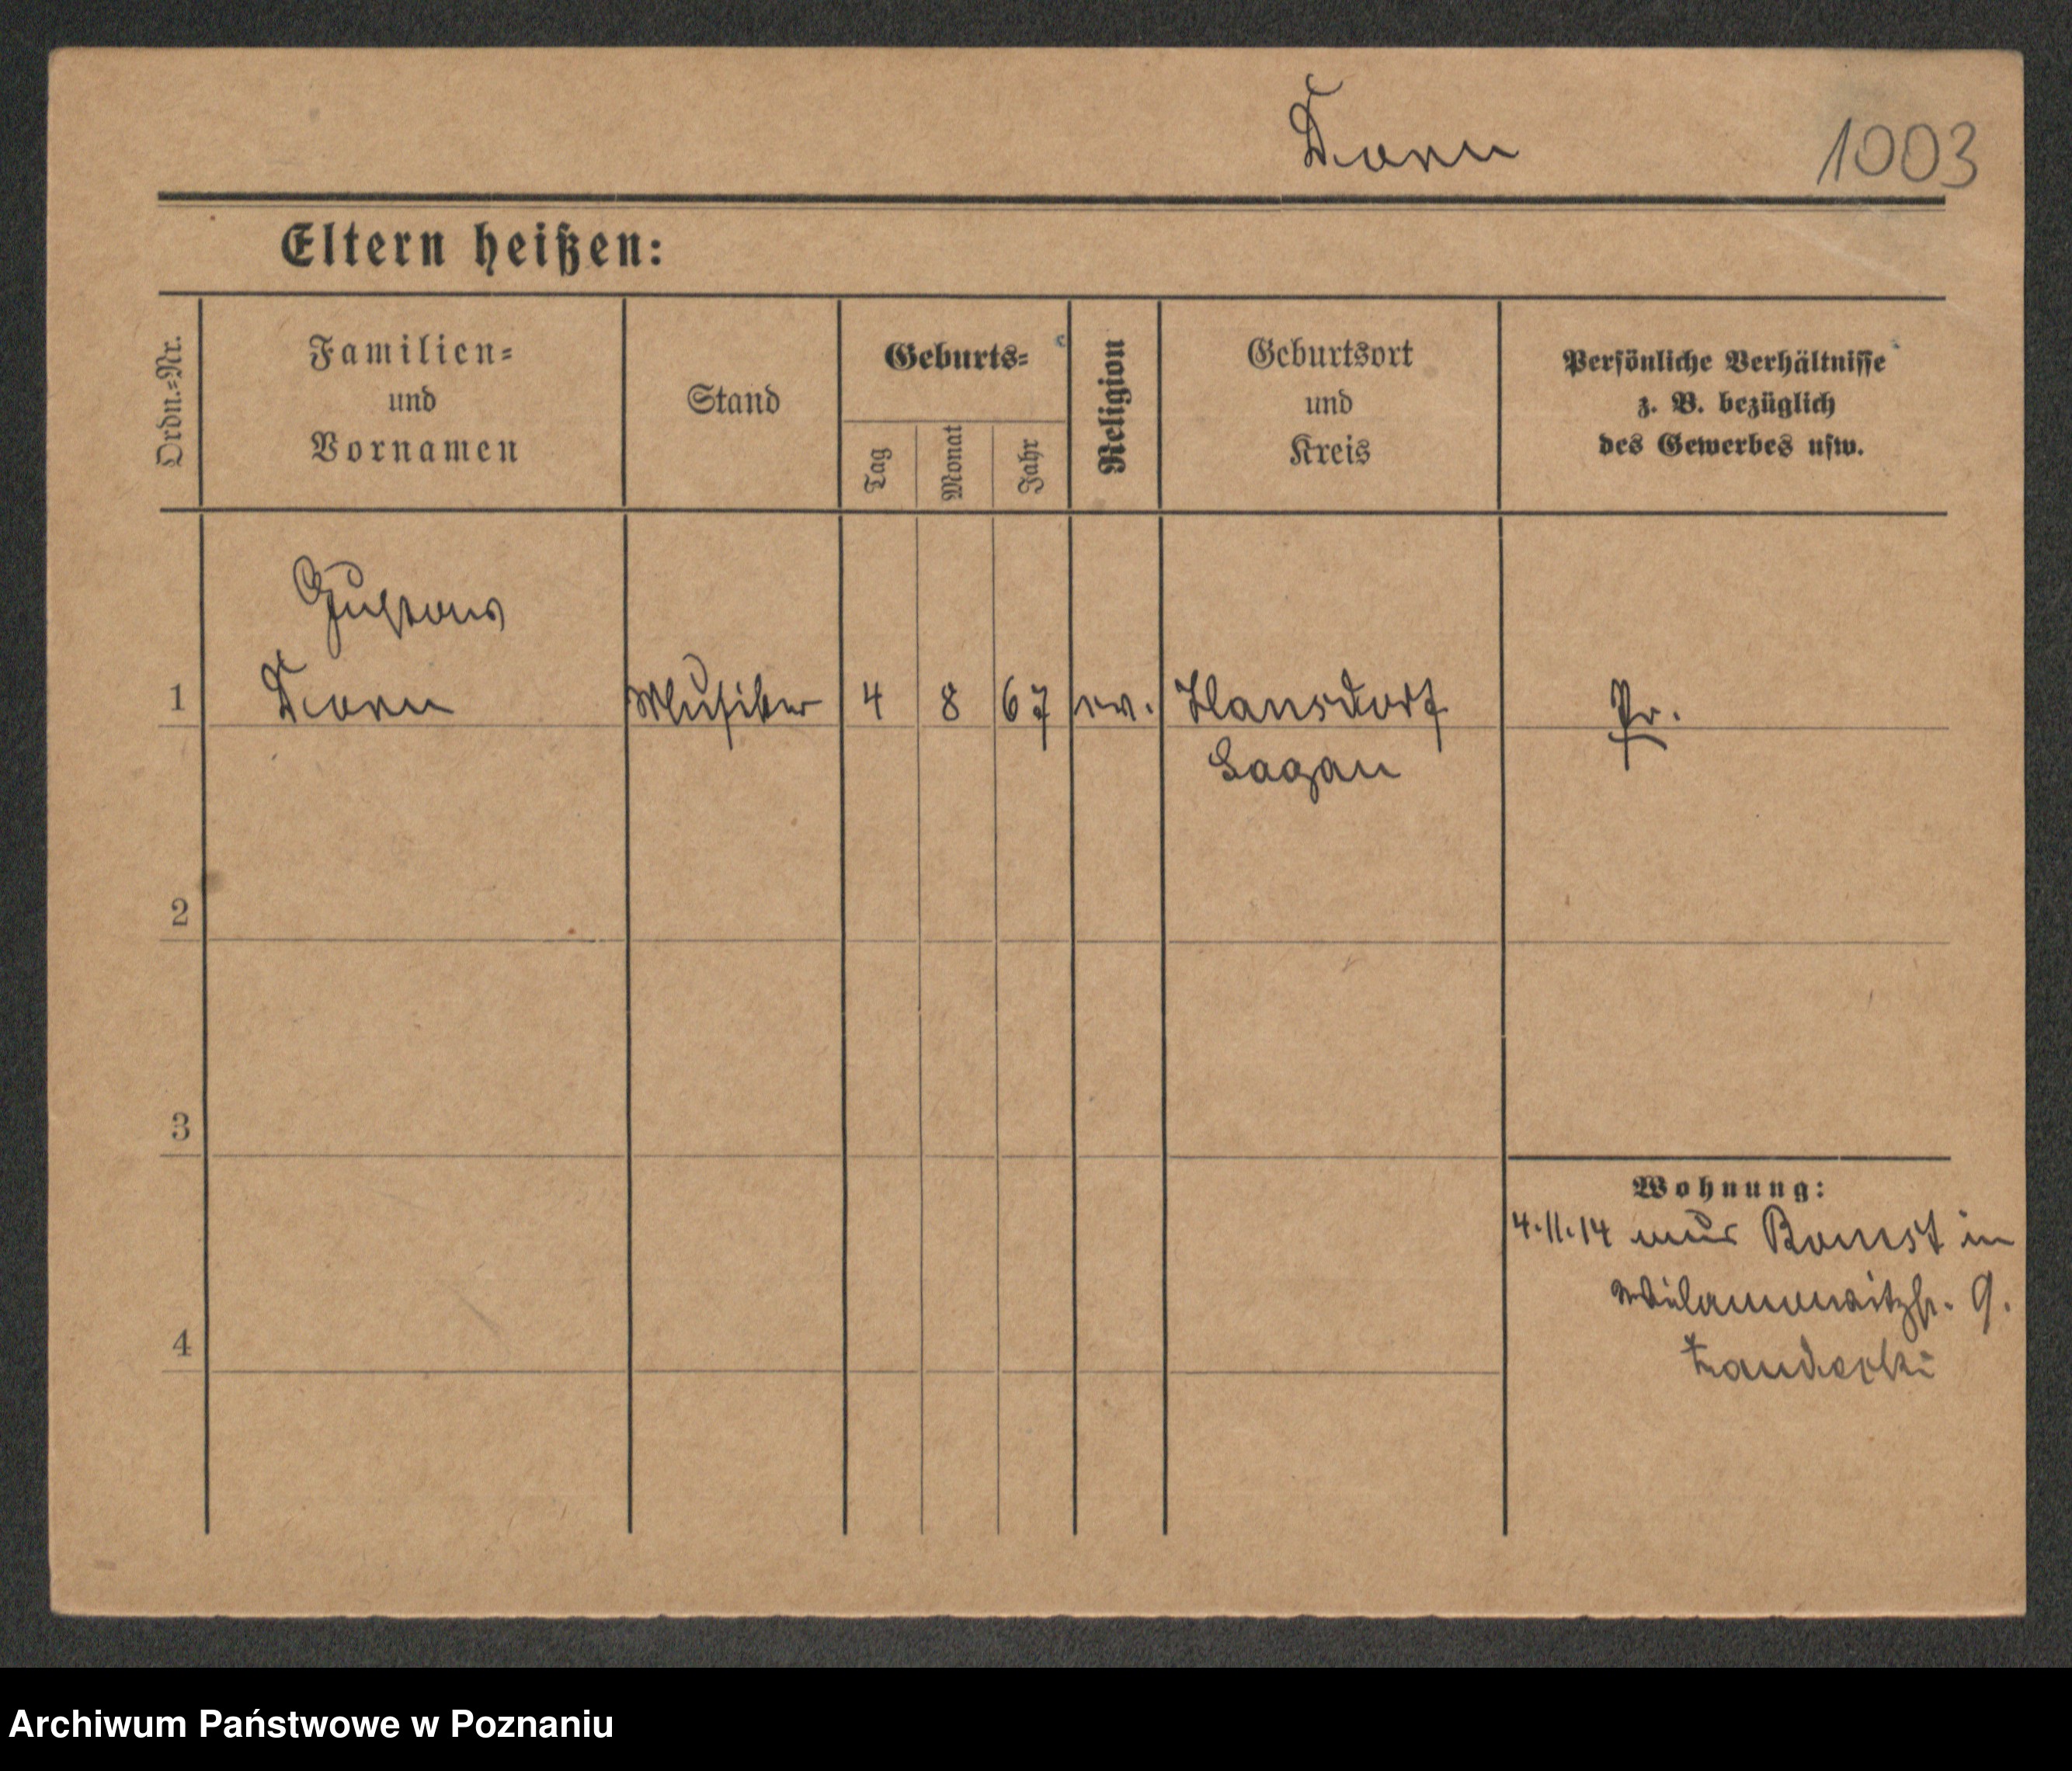 Dorn
1003
Eltern heißen:
Ordn.=Nr.
Familien=
und
Vornamen
Stand
Geburts=
Tag
Monat
Jahr
Religion
Geburtsort
und
Kreis
Persönliche Verhältnisse
z. B. bezüglich
des Gewerbes usw.
Gustav
1 Dorn Musiker 4 8 67 ev. Hansdorf Pr.
Sagan
2
3
Wohnung:
4.11.14 aus Bomst in
Wilamowitzstr. 9.
4
Archiwum Państwowe w Poznaniu